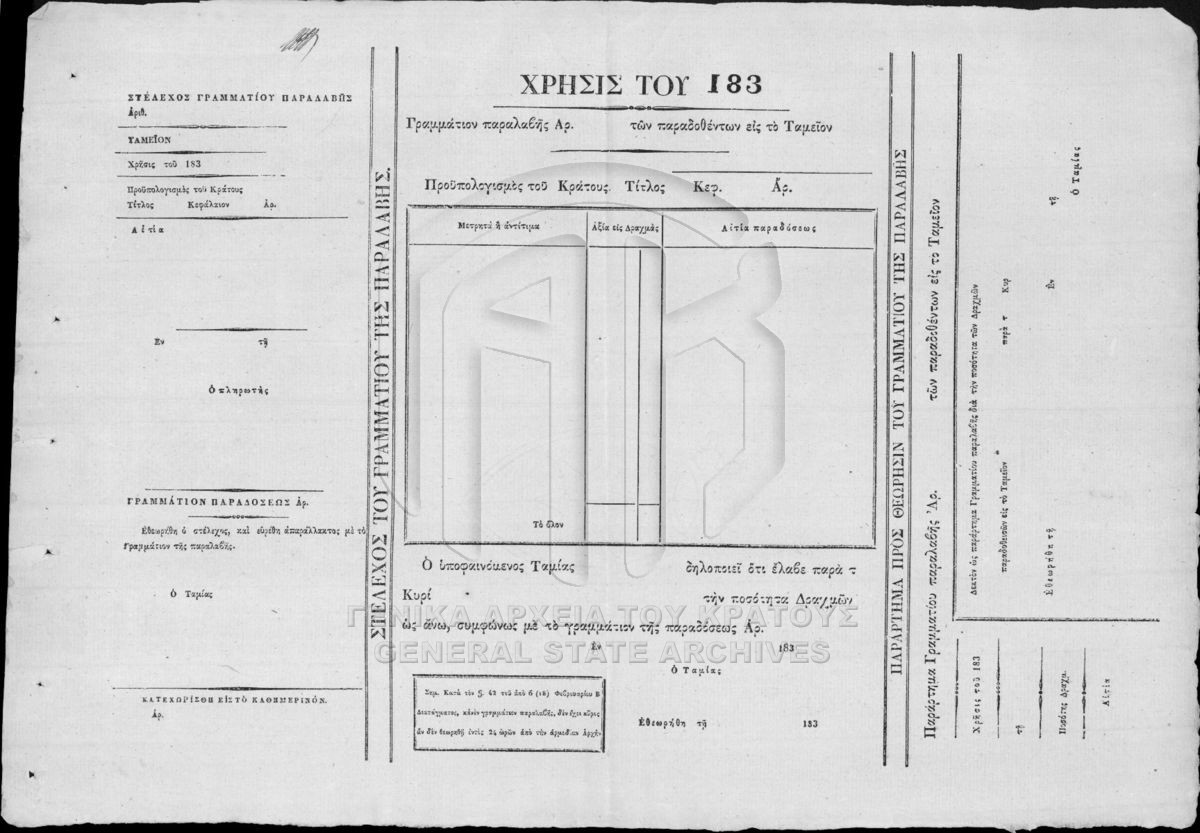 ΣΤΕΛΕΧΟΣ ΓΡΑΜΜΑΤΙΟΥ ΠΑΡΑΛΑΒΗΣ
Ἀριθ.
ΤΑΜΕΙΟΝ
Χρῆσις τοῦ 183
Προϋπολογισμὸς τοῦ Κράτους
Τίτλος Κεφάλαιον Ἀρ.
Αἰτία
Ἐν τῇ
Ὁ πληρωτὴς
ΓΡΑΜΜΑΤΙΟΝ ΠΑΡΑΔΟΣΕΩΣ Ἀρ.
Ἐθεωρήθη ὁ στέλεχος, καὶ εὑρέθη ἀπαράλλακτος μὲ τὸ
Γραμμάτιον τῆς παραλαβῆς.
Ὁ Ταμίας
ΚΑΤΕΧΩΡΙΣΘΗ ΕΙΣ ΤΟ ΚΑΘΗΜΕΡΙΝΟΝ.
Ἀρ.
ΣΤΕΛΕΧΟΣ ΤΟΥ ΓΡΑΜΜΑΤΙΟΥ ΤΗΣ ΠΑΡΑΛΑΒΗΣ.
ΧΡΗΣΙΣ ΤΟΥ 183
Γραμμάτιον παραλαβῆς Ἀρ. τῶν παραδοθέντων εἰς τὸ Ταμεῖον
Προϋπολογισμὸς τοῦ Κράτους. Τίτλος Κεφ. Ἄρ.
Μετρητὰ ἢ ἀντίτιμα Ἀξία εἰς Δραχμὰς Αἰτία παραδόσεως
Τὸ ὅλον
Ὁ ὑποφαινόμενος Ταμίας δηλοποιεῖ ὅτι ἔλαβε παρὰ τ
Κυρί τὴν ποσότητα Δραχμῶν
ὡς ἄνω, συμφώνως μὲ τὸ γραμμάτιον τῆς παραδόσεως Ἀρ.
Ἐν 183
Ὁ Ταμίας
Σημ. Κατὰ τὸν §. 42 τοῦ ἀπὸ 6 (18) Φεβρουαρίου Β
Διατάγματος, κἀνὲν γραμμάτιον παραλαβῆς, δὲν ἔχει κῦρος
ἂν δὲν θεωρηθῇ ἐντὸς 24 ὡρῶν ἀπὸ τὴν ἁρμοδίαν Ἀρχὴν
Ἐθεωρήθη τῇ 183
ΓΕΝΙΚΑ ΑΡΧΕΙΑ ΤΟΥ ΚΡΑΤΟΥΣ
GENERAL STATE ARCHIVES
ΠΑΡΑΡΤΗΜΑ ΠΡΟΣ ΘΕΩΡΗΣΙΝ ΤΟΥ ΓΡΑΜΜΑΤΙΟΥ ΤΗΣ ΠΑΡΑΛΑΒΗΣ
Παράρτημα Γραμματίου παραλαβῆς Ἀρ. τῶν παραδοθέντων εἰς τὸ Ταμεῖον
Χρῆσις τοῦ 183
τῇ
Ποσότες Δραχμ.
Αἰτία
Δεκτὸν ὡς παράρτημα Γραμματίου παραλαβῆς διὰ τὴν ποσότητα τῶν Δραχμῶν
παραδοθεισῶν εἰς τὸ Ταμεῖον παρὰ τ Κυρ
Ἐθεωρήθη τῇ Ἐν τῇ
Ὁ Ταμίας